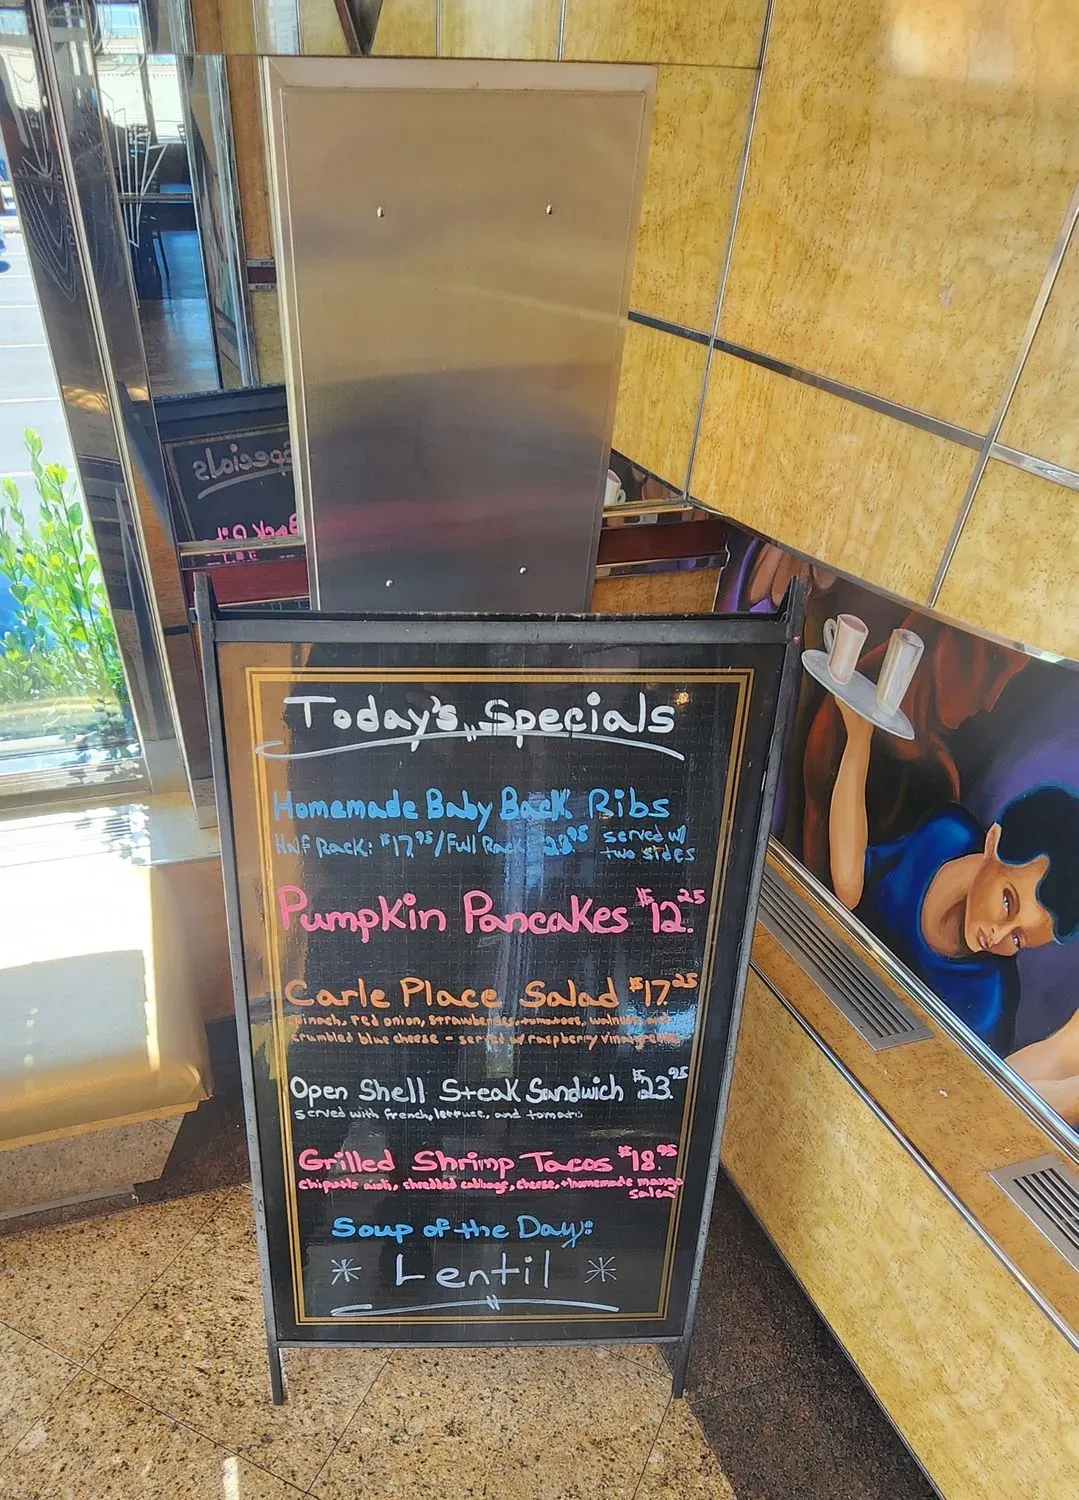 Specials
Back Ribs
Today's Specials
Homemade Baby Back Ribs
Half Rack: $17.95/Full Rack $28.95 served w/
two sides
Pumpkin Pancakes $12.25
Carle Place Salad $17.25
spinach, red onion, strawberries, tomatoes, walnuts, and
crumbled blue cheese - served w/ raspberry vinaigrette
Open Shell Steak Sandwich $23.95
served with french, lettuce, and tomato
Grilled Shrimp Tacos $18.95
chipotle aioli, shredded cabbage, cheese, + homemade mango
salsa
Soup of the Day:
* Lentil *